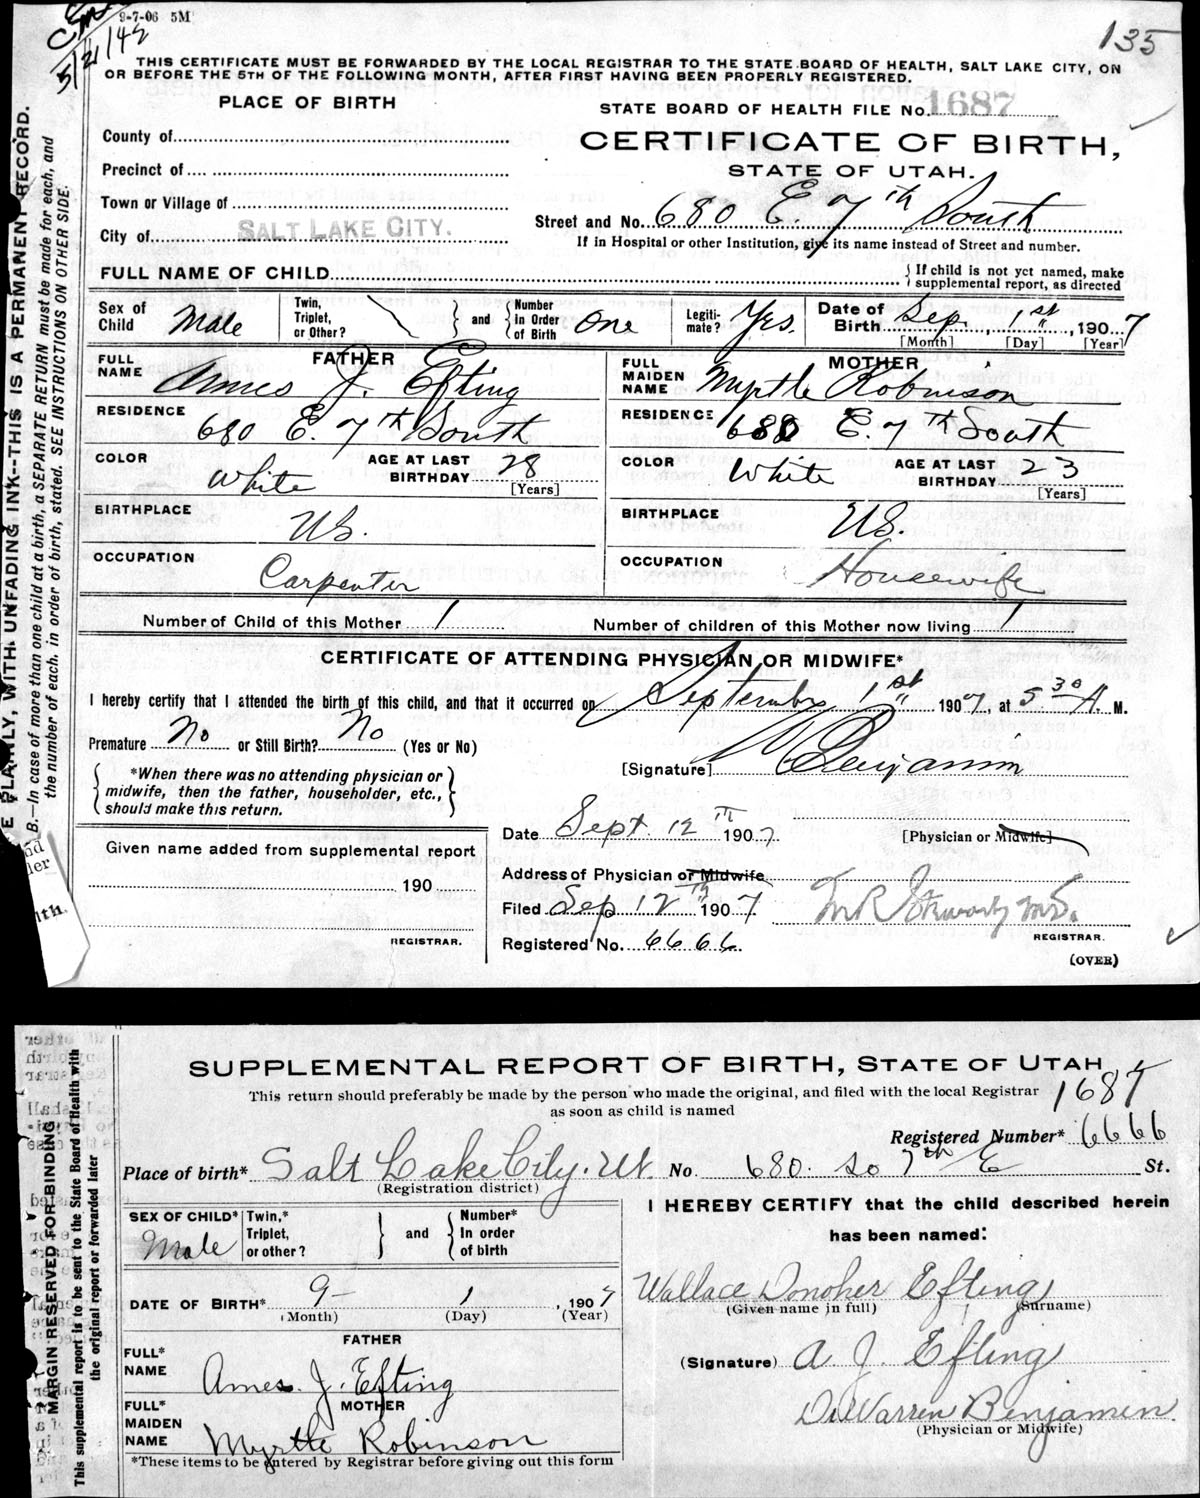 9-7-06 5M
5/21/42
135
THIS CERTIFICATE MUST BE FORWARDED BY THE LOCAL REGISTRAR TO THE STATE BOARD OF HEALTH, SALT LAKE CITY, ON
OR BEFORE THE 5TH OF THE FOLLOWING MONTH, AFTER FIRST HAVING BEEN PROPERLY REGISTERED.
PLACE OF BIRTH
STATE BOARD OF HEALTH FILE No. 1687
County of
CERTIFICATE OF BIRTH,
Precinct of
STATE OF UTAH.
Town or Village of
Street and No. 680 E. 7th South
City of SALT LAKE CITY.
If in Hospital or other Institution, give its name instead of Street and number.
FULL NAME OF CHILD
If child is not yet named, make
supplemental report, as directed
Sex of Child Male
Twin, Triplet, or Other?
and
Number In Order of Birth One
Legiti-mate? Yes.
Date of Birth Sep. 1st, 1907
[Month] [Day] [Year]
FATHER
FULL NAME Ames J. Efting
RESIDENCE 680 E. 7th South
COLOR White
AGE AT LAST BIRTHDAY 28
[Years]
BIRTHPLACE US.
OCCUPATION Carpenter
MOTHER
FULL MAIDEN NAME Myrtle Robinson
RESIDENCE 680 E. 7th South
COLOR White
AGE AT LAST BIRTHDAY 23
[Years]
BIRTHPLACE US.
OCCUPATION Housewife
Number of Child of this Mother 1
Number of children of this Mother now living 1
CERTIFICATE OF ATTENDING PHYSICIAN OR MIDWIFE*
I hereby certify that I attended the birth of this child, and that it occurred on September 1st 1907, at 5.30 A. M.
Premature No or Still Birth? No (Yes or No)
*When there was no attending physician or
midwife, then the father, householder, etc.,
should make this return.
[Signature] W Benjamin
Date Sept. 12th 1907
[Physician or Midwife]
Given name added from supplemental report
190
REGISTRAR.
Address of Physician or Midwife
Filed Sep 12th 1907
REGISTRAR.
Registered No. 6666
(OVER)
E PLAINLY, WITH UNFADING INK--THIS IS A PERMANENT RECORD.
B.—In case of more than one child at a birth, a SEPARATE RETURN must be made for each, and
the number of each, in order of birth, stated. SEE INSTRUCTIONS ON OTHER SIDE.
SUPPLEMENTAL REPORT OF BIRTH, STATE OF UTAH
This return should preferably be made by the person who made the original, and filed with the local Registrar
as soon as child is named
1687
Registered Number* 6666
Place of birth* Salt Lake City. Ut. No. 680. So 7th E St.
(Registration district)
SEX OF CHILD* Male
Twin,* Triplet, or other?
and
Number* In order of birth
DATE OF BIRTH* 9- 1, 1907
(Month) (Day) (Year)
FATHER
FULL* NAME Ames. J. Efting
MOTHER
FULL* MAIDEN NAME Myrtle Robinson
*These items to be entered by Registrar before giving out this form
I HEREBY CERTIFY that the child described herein
has been named:
Wallace Donoher Efting
(Given name in full) (Surname)
(Signature) A. J. Efting
Dr Warren Benjamin.
(Physician or Midwife)
MARGIN RESERVED FOR BINDING
This supplemental report is to be sent to the State Board of Health with
the original report or forwarded later